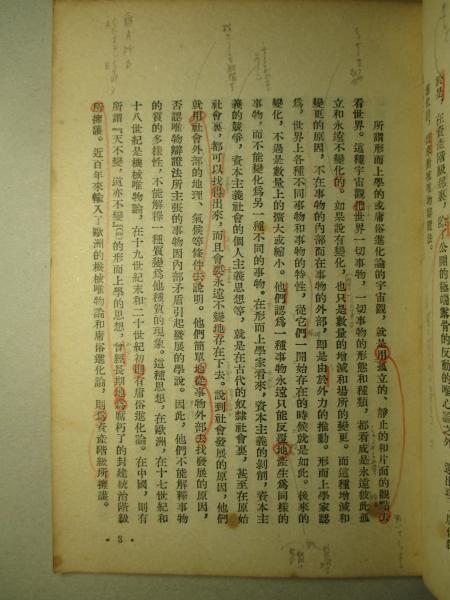 於是，在資產階級那裏，除了公開的極端露骨的反動的唯心論之外，還出現
唯物辯證法。
所謂形而上學的或庸俗進化論的宇宙觀，就是用孤立的、靜止的和片面的觀點去
看世界。這種宇宙觀把世界一切事物，一切事物的形態和種類，都看成是永遠彼此孤
立和永遠不變化的。如果說有變化，也只是數量的增減和場所的變更。而這種增減和
變更的原因，不在事物的內部而在事物的外部，即是由於外力的推動。形而上學家認
爲，世界上各種不同事物和事物的特性，從它們一開始存在的時候就是如此。後來的
變化，不過是數量上的擴大或縮小。他們認爲一種事物永遠只能反覆地產生爲同樣的
事物，而不能變化爲另一種不同的事物。在形而上學家看來，資本主義的剝削，資本主
義的競爭，資本主義社會的個人主義思想等，就是在古代的奴隸社會裏，甚至在原始
社會裏，都可以找得出來，而且會要永遠不變地存在下去。說到社會發展的原因，他們
就用社會外部的地理、氣候等條件去說明。他們簡單地從事物外部去找發展的原因，
否認唯物辯證法所主張的事物因內部矛盾引起發展的學說。因此，他們不能解釋事物
的質的多樣性，不能解釋一種質變爲他種質的現象。這種思想，在歐洲，在十七世紀和
十八世紀是機械唯物論，在十九世紀末和二十世紀初則有庸俗進化論。在中國，則有
所謂『天不變，道亦不變』的形而上學的思想，曾經長期地爲腐朽了的封建統治階級
所擁護。近百年來輸入了歐洲的機械唯物論和庸俗進化論，則爲資產階級所擁護。
• 3 •